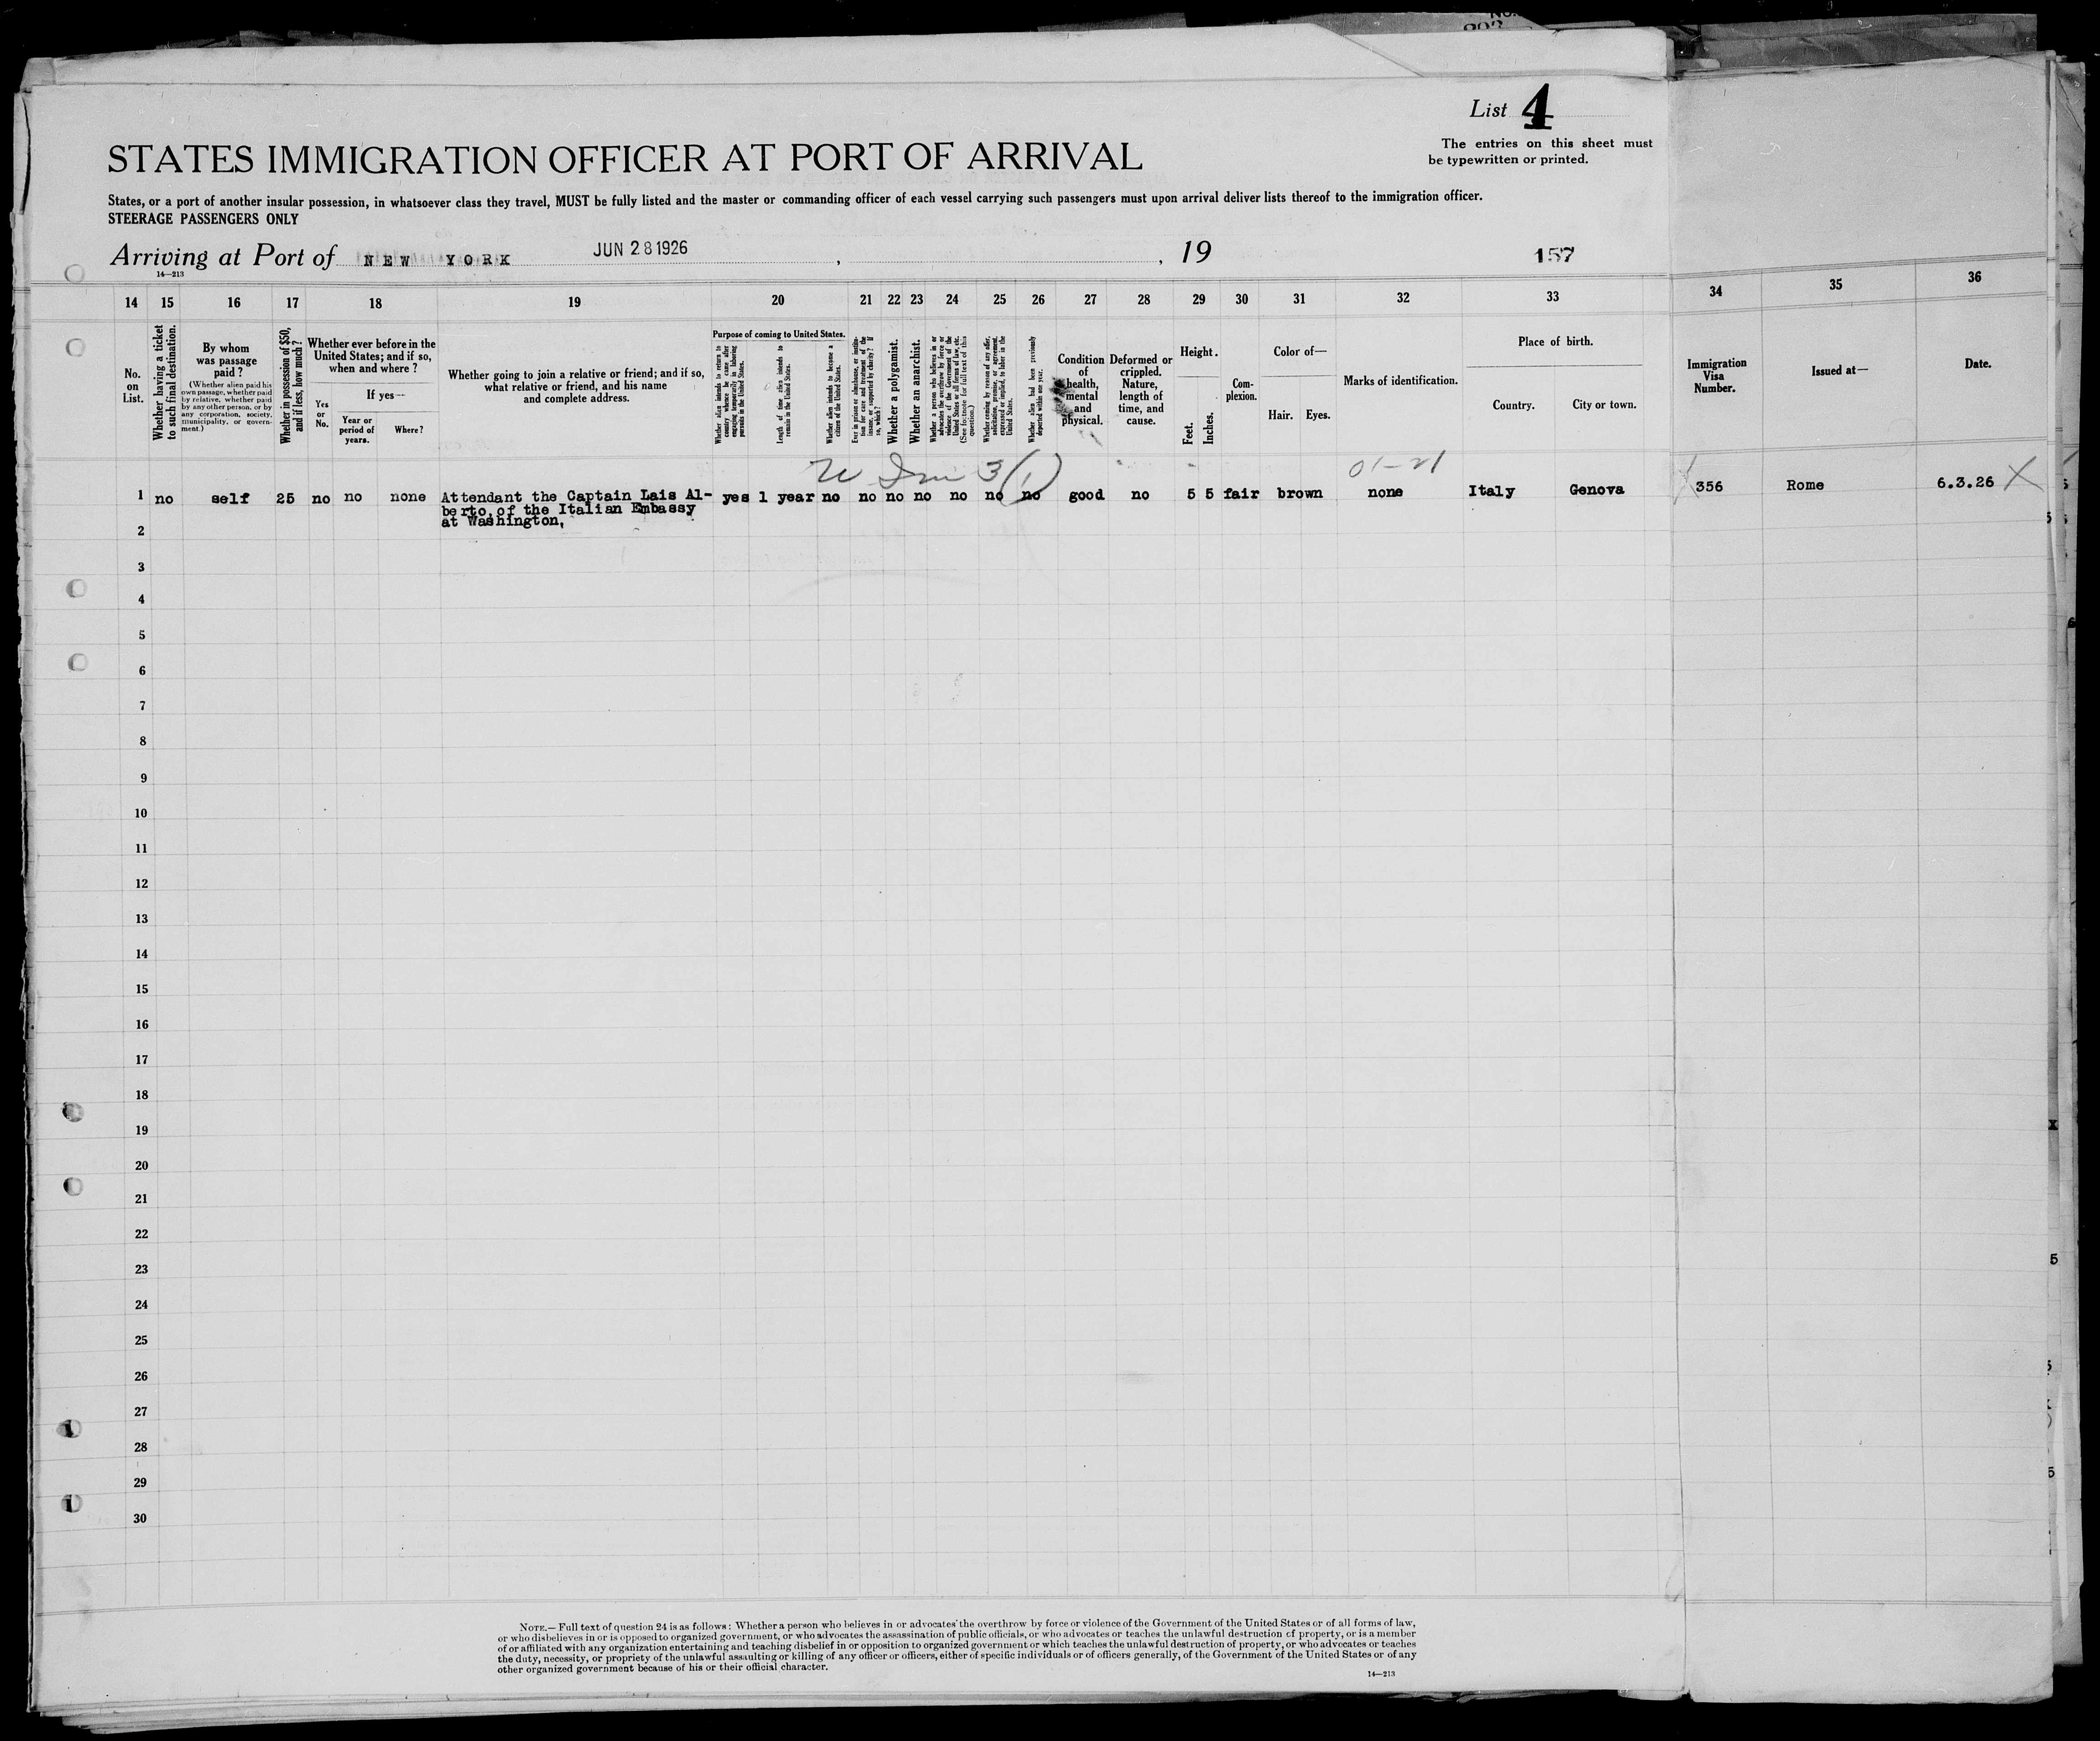 List 4
The entries on this sheet must
be typewritten or printed.
STATES IMMIGRATION OFFICER AT PORT OF ARRIVAL
States, or a port of another insular possession, in whatsoever class they travel, MUST be fully listed and the master or commanding officer of each vessel carrying such passengers must upon arrival deliver lists thereof to the immigration officer.
STEERAGE PASSENGERS ONLY
Arriving at Port of NEW YORK JUN 28 1926 , , 19 157
14—213
14 15 16 17 18 19 20 21 22 23 24 25 26 27 28 29 30 31 32 33 34 35 36
No.
on
List.
Whether having a ticket
to such final destination.
By whom
was passage
paid?
(Whether alien paid his
own passage, whether paid
by relative, whether paid
by any other person, or by
any corporation, society,
municipality, or govern-
ment.)
Whether in possession of $50,
and if less, how much?
Whether ever before in the
United States; and if so,
when and where?
Yes
or
No.
If yes—
Year or
period of
years.
Where?
Whether going to join a relative or friend; and if so,
what relative or friend, and his name
and complete address.
Purpose of coming to United States.
Whether alien intends to return to
country whence he came after
engaging temporarily in laboring
pursuits in the United States.
Length of time alien intends to
remain in the United States.
Whether alien intends to become a
citizen of the United States.
Ever in prison or almshouse, or institu-
tion for care and treatment of the
insane, or supported by charity? If
so, which?
Whether a polygamist.
Whether an anarchist.
Whether a person who believes in or
advocates the overthrow by force or
violence of the Government of the
United States or all forms of law, etc.
(See footnote for full text of this
question.)
Whether coming by reason of any offer,
solicitation, promise, or agreement,
expressed or implied, to labor in the
United States.
Whether alien had been previously
deported within one year.
Condition
of
health,
mental
and
physical.
Deformed or
crippled.
Nature,
length of
time, and
cause.
Height.
Feet.
Inches.
Com-
plexion.
Color of—
Hair. Eyes.
Marks of identification.
Place of birth.
Country. City or town.
Immigration
Visa
Number.
Issued at—
Date.
3(1) 01-21
1 no self 25 no no none Attendant the Captain Lais Al- yes 1 year no no no no no no no good no 5 5 fair brown none Italy Genova 356 Rome 6.3.26 X
berto, of the Italian Embassy
at Washington,
2
3
4
5
6
7
8
9
10
11
12
13
14
15
16
17
18
19
20
21
22
23
24
25
26
27
28
29
30
NOTE.—Full text of question 24 is as follows: Whether a person who believes in or advocates the overthrow by force or violence of the Government of the United States or of all forms of law,
or who disbelieves in or is opposed to organized government, or who advocates the assassination of public officials, or who advocates or teaches the unlawful destruction of property, or is a member
of or affiliated with any organization entertaining and teaching disbelief in or opposition to organized government or which teaches the unlawful destruction of property, or who advocates or teaches
the duty, necessity, or propriety of the unlawful assaulting or killing of any officer or officers, either of specific individuals or of officers generally, of the Government of the United States or of any
other organized government because of his or their official character.
14—213